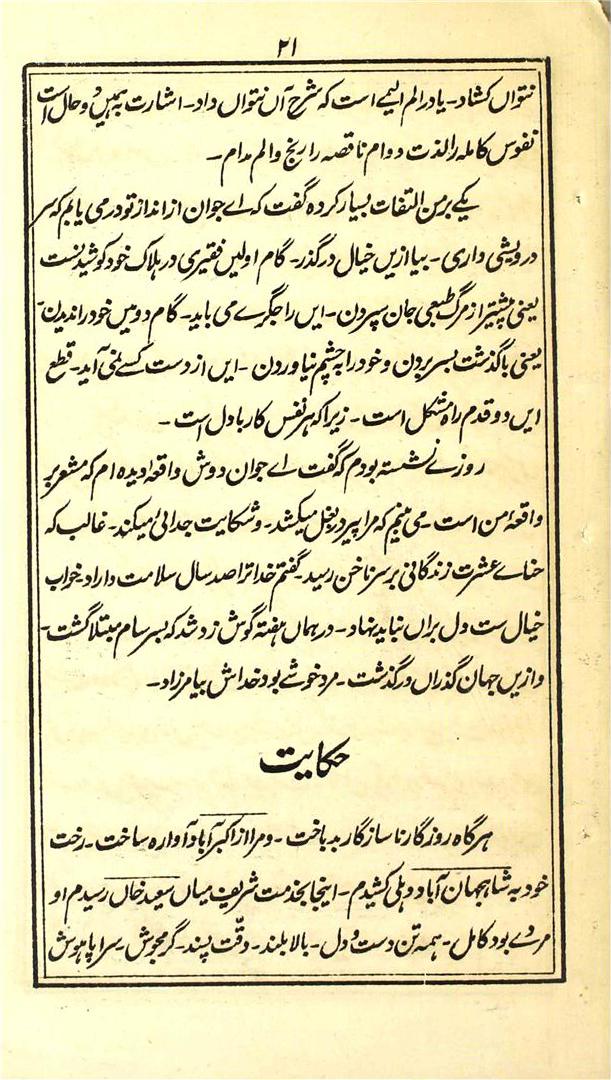 ۲۱
نتواں کشاد۔ یا درالم الیمے است کہ شرح آں نتواں داد۔ اشارت بہ ہمیں دو حال است
نفوس کاملہ را لذت دوام ناقصہ را رنج و الم مدام۔
یکے بر من التفات بسیار کردہ گفت کہ اے جوان از انداز تو در می یابم کہ سر
درویشی داری۔ بیا ازیں خیال درگذر۔ گام اولین فقیری در ہلاک خود کوشیدنست
یعنی پیشتر از مرگ طبیعی جان سپردن۔ ایں را جگرے می باید۔ گام دومیں خود را ندیدن۔
یعنی باگذشت بسر بردن و خود را بہ چشم نیاوردن۔ ایں از دست کسے نمی آید۔ قطع
ایں دو قدم راہ مشکل است۔ زیرا کہ ہر نفس کار با دل است۔
روزے نشستہ بودم کہ گفت اے جوان دوش واقعہ ا دیدہ ام کہ مشعر بر
واقعۂ من است۔ می بینم کہ مرا پیر در بغل میکشد۔ و شکایت جدائی ہا میکند۔ غالب کہ
حناے عشرت زندگانی بر سر ناخن رسید۔ گفتم خدا ترا صد سال سلامت داراد۔ خواب
خیال ست دل براں نباید نہاد۔ در ہماں ہفتہ گوش زد شد کہ بسرسام مبتلا گشت۔
و ازیں جہان گذراں درگذشت۔ مرد خوشے بود خداش بیامرزاد۔
حکایت
ہر گاہ روزگار ناسازگار بد باخت۔ و مرا از اکبرآباد آوارہ ساخت۔ رخت
خود بہ شاہجہان آباد دہلی کشیدم۔ اینجا بخدمت شریف میاں سعید خاں رسیدم او
مردے بود کامل۔ ہمہ تن دست و دل۔ بالا بلند۔ دقّت پسند۔ گرمجوش۔ سراپا ہوش